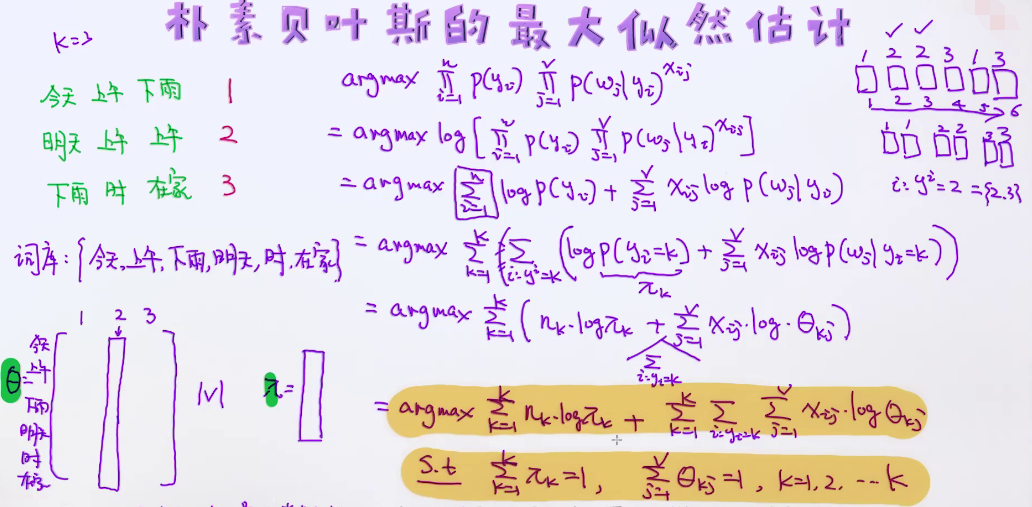 朴素贝叶斯的最大似然估计
K=3
今天 上午 下雨 1
明天 上午 上午 2
下雨 时 在家 3
词库:{今天,上午,下雨,明天,时,在家}
1 2 3
θ=
今天
上午
下雨
明天
时
在家
|V|
π=
argmax ∏_{i=1}^{n} p(y_i) ∏_{j=1}^{V} p(w_j|y_i)^{x_{ij}}
= argmax log[∏_{i=1}^{n} p(y_i) ∏_{j=1}^{V} p(w_j|y_i)^{x_{ij}}]
= argmax ∑_{i=1}^{n} log p(y_i) + ∑_{j=1}^{V} x_{ij} log p(w_j|y_i)
= argmax ∑_{k=1}^{K} (∑_{i:y^i=k} (log p(y_i=k) + ∑_{j=1}^{V} x_{ij} log p(w_j|y_i=k)))
π_k
= argmax ∑_{k=1}^{K} (n_k·log π_k + ∑_{j=1}^{V} x_{ij}·log·θ_{kj})
∑_{i:y_i=k}
= argmax ∑_{k=1}^{K} n_k·log π_k + ∑_{k=1}^{K} ∑_{i:y_i=k} ∑_{j=1}^{V} x_{ij}·log θ_{kj}
s.t ∑_{k=1}^{K} π_k=1, ∑_{j=1}^{V} θ_{kj}=1, k=1,2,...k
✓ ✓
1 2 2 3 1 3
1 2 3 4 5 6
1 1 2 2 3 3
i:y^i=2={2.3}